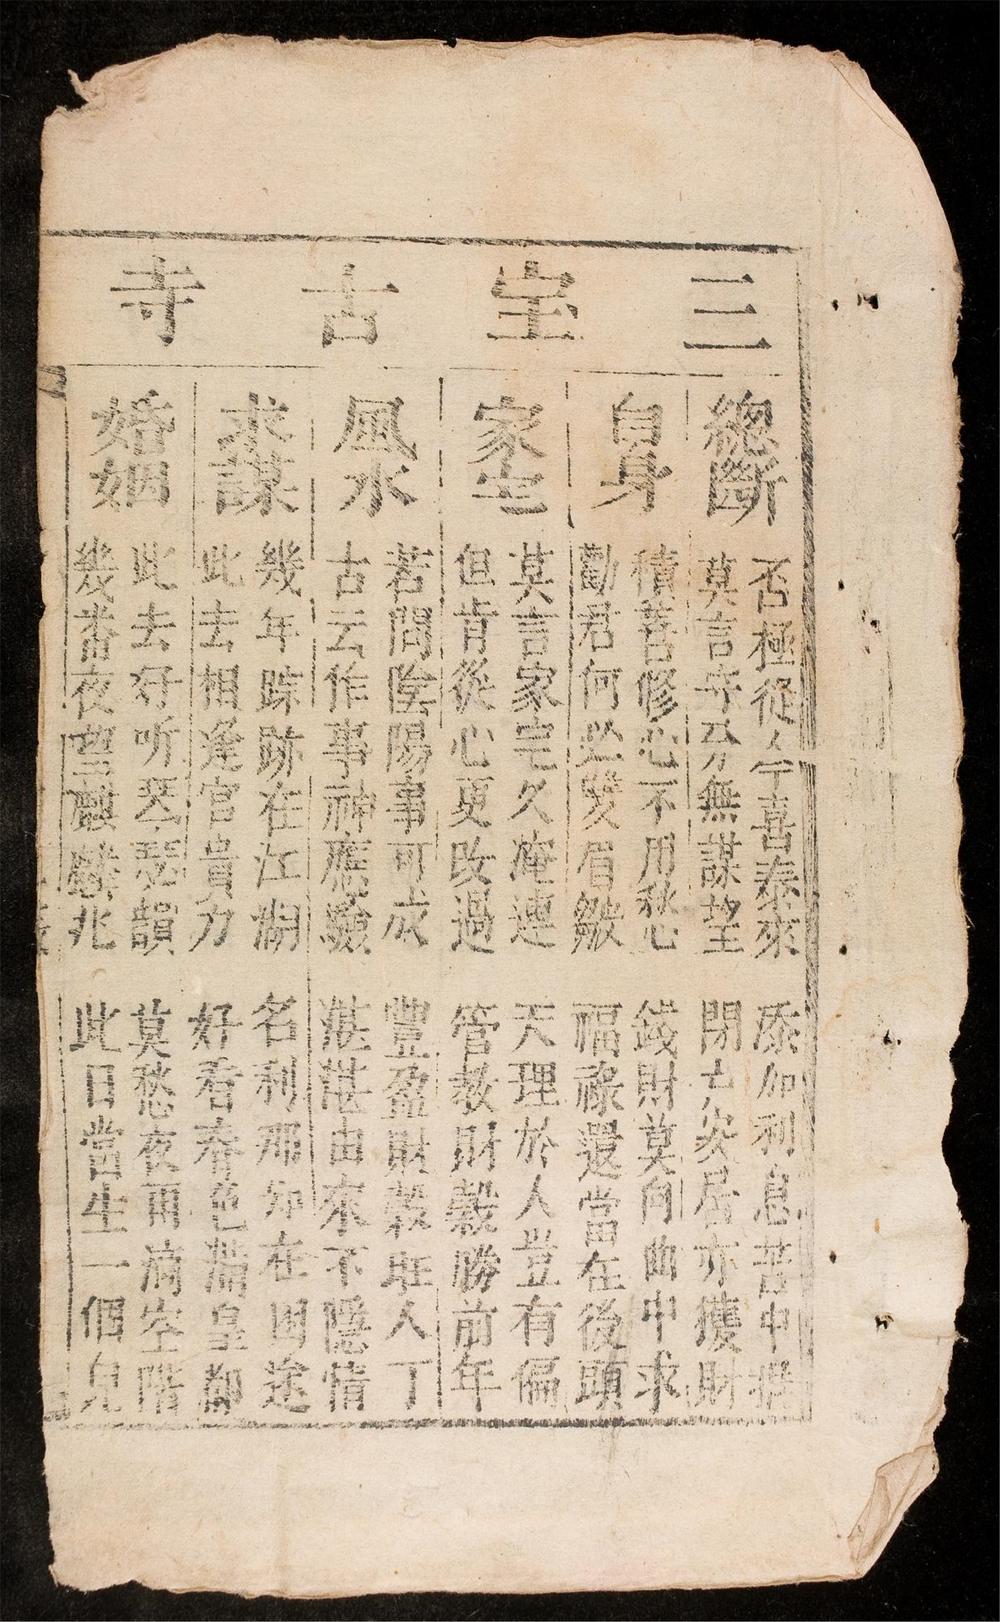 三宝古寺
總斷
否極從今喜泰來 添加利息苦中推
莫言守分無謀望 閉亡災居亦獲財
自身
積善修心不用愁 錢財莫向曲中求
勸君何必雙眉皺 福祿還當在後頭
家宅
莫言家宅久庵連 天理於人豈有偏
但肯從心更改過 管教財穀勝前年
風水
若問陰陽事可成 豐盈財穀旺人丁
古云作事神應驗 湛湛由來不隱情
求謀
幾年踪跡在江湖 名利那知在困途
此去相逢官貴力 好看春色滿皇都
婚姻
此去好听琴瑟韻 莫愁夜雨滴空階
幾番夜望麒麟兆 此日當生一個兒